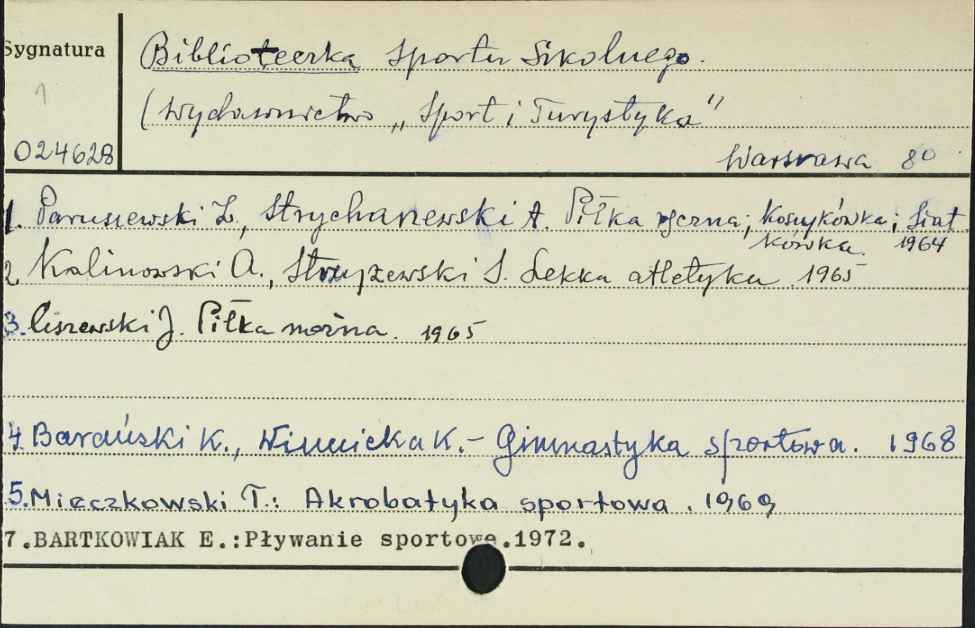 Sygnatura
Biblioteczka Sportu Szkolnego.
1
(Wydawnictwo „Sport i Turystyka”
024628
Warszawa 8°
1. Paruszewski Z., Strychaniewski A. Piłka ręczna; Koszykówka; Siat
kówka. 1964
2. Kalinowski A., Strzyżewski S. Lekka atletyka. 1965
3. Ciszewski J. Piłka nożna. 1965
4. Barański K., Winnicka K. - Gimnastyka sportowa. 1968
5. Mieczkowski T.: Akrobatyka sportowa. 1969
7.BARTKOWIAK E.:Pływanie sportowe.1972.